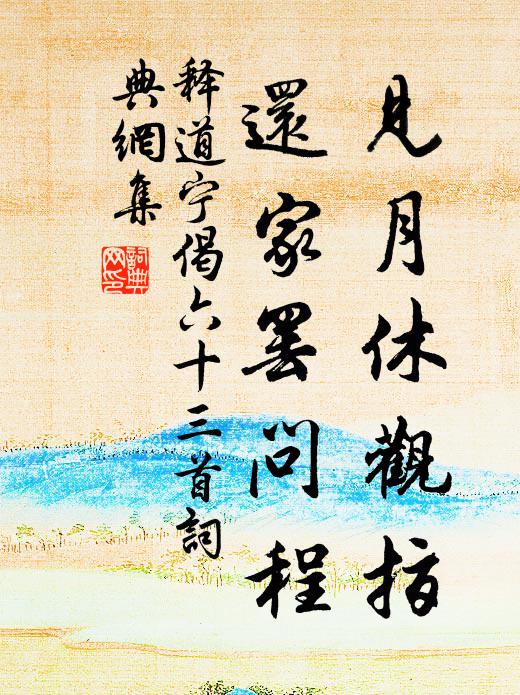 見月休觀指
還家罷問程
释道宁偈六十三首詞
典網集
詞典
网印